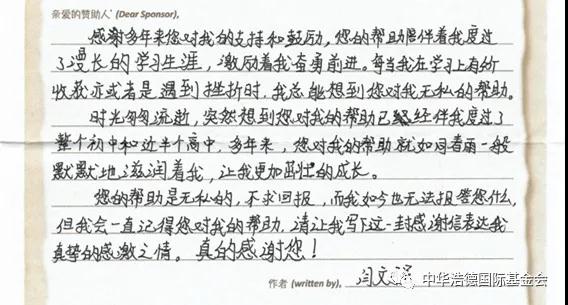 亲爱的赞助人* (Dear Sponsor),
感谢多年来您对我的支持和鼓励,您的帮助陪伴着我度过
了漫长的学习生涯,激励着我奋勇前进。每当我在学习上有所
收获亦或者是遇到挫折时,我总能想到您对我无私的帮助。
时光匆匆流逝,突然想到您对我的帮助已经伴我度过了
整个初中和近半个高中,多年来,您对我的帮助就如同春雨一般
默默地滋润着我,让我更加茁壮的成长。
您的帮助是无私的,不求回报,而我如今也无法报答您什么,
但我会一直记得您对我的帮助,请让我写下这一封感谢信表达我
真挚的感激之情。真的感谢您!
作者 (written by), 闫文
中华浩德国际基金会